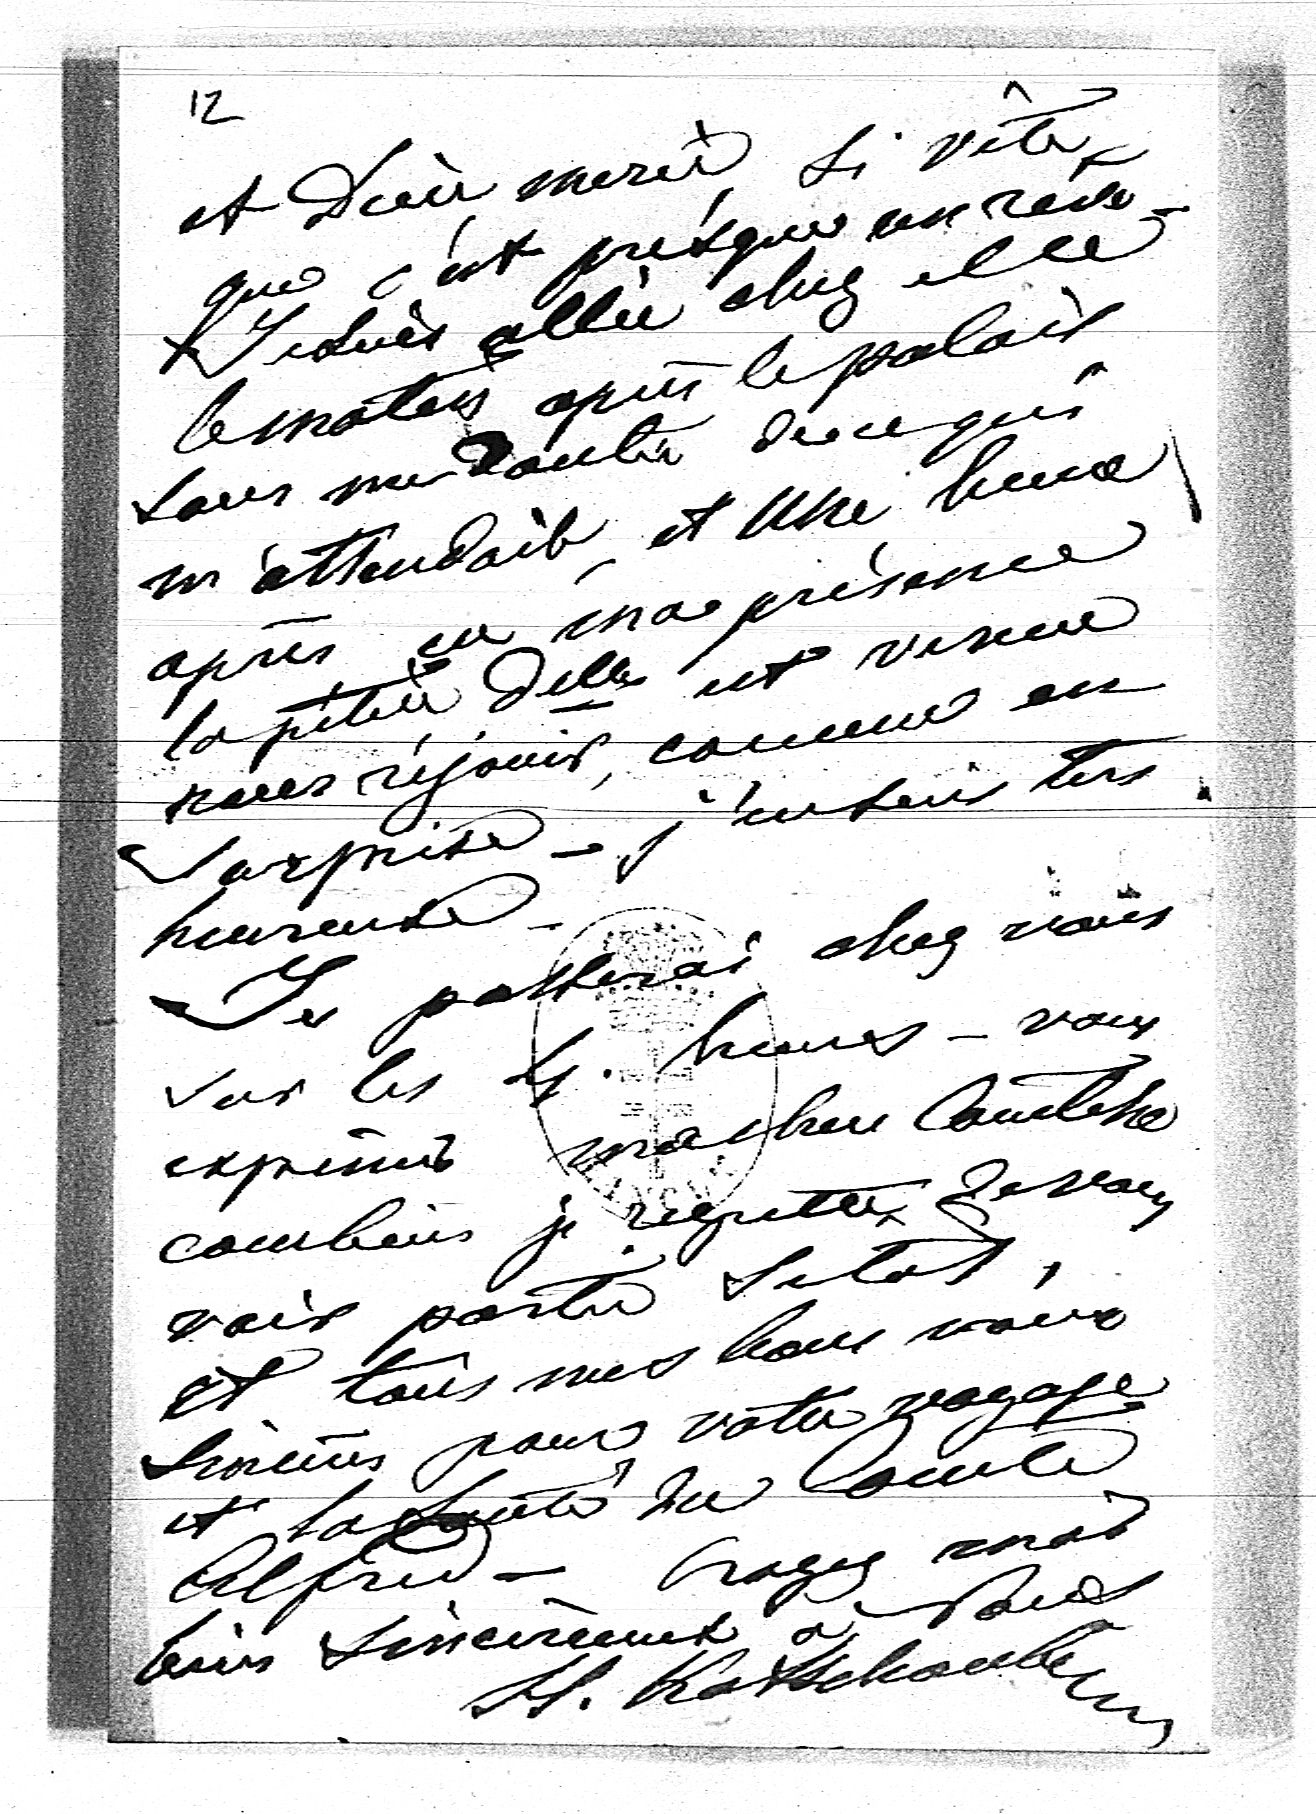 12
et Dieu merci si vite
que c'est presque un rêve -
Je suis allée chez elle
le matin après le palais
sans me douter de ce qui
m'attendait, et une heure
après en ma présence
la petite Dlle est venue
nous réjouir, comme en
surprise - j'en suis très
heureuse -
Je passerai chez vous
sur les 4. heures - vous
exprimer ma chère Comtesse
combien je regrette de vous
voir partir sitôt,
et tous mes bons vœux
sincères pour votre voyage
et la santé du Comte
Alfred - Croyez moi
bien sincèrement à vous
H. Kotschoubey